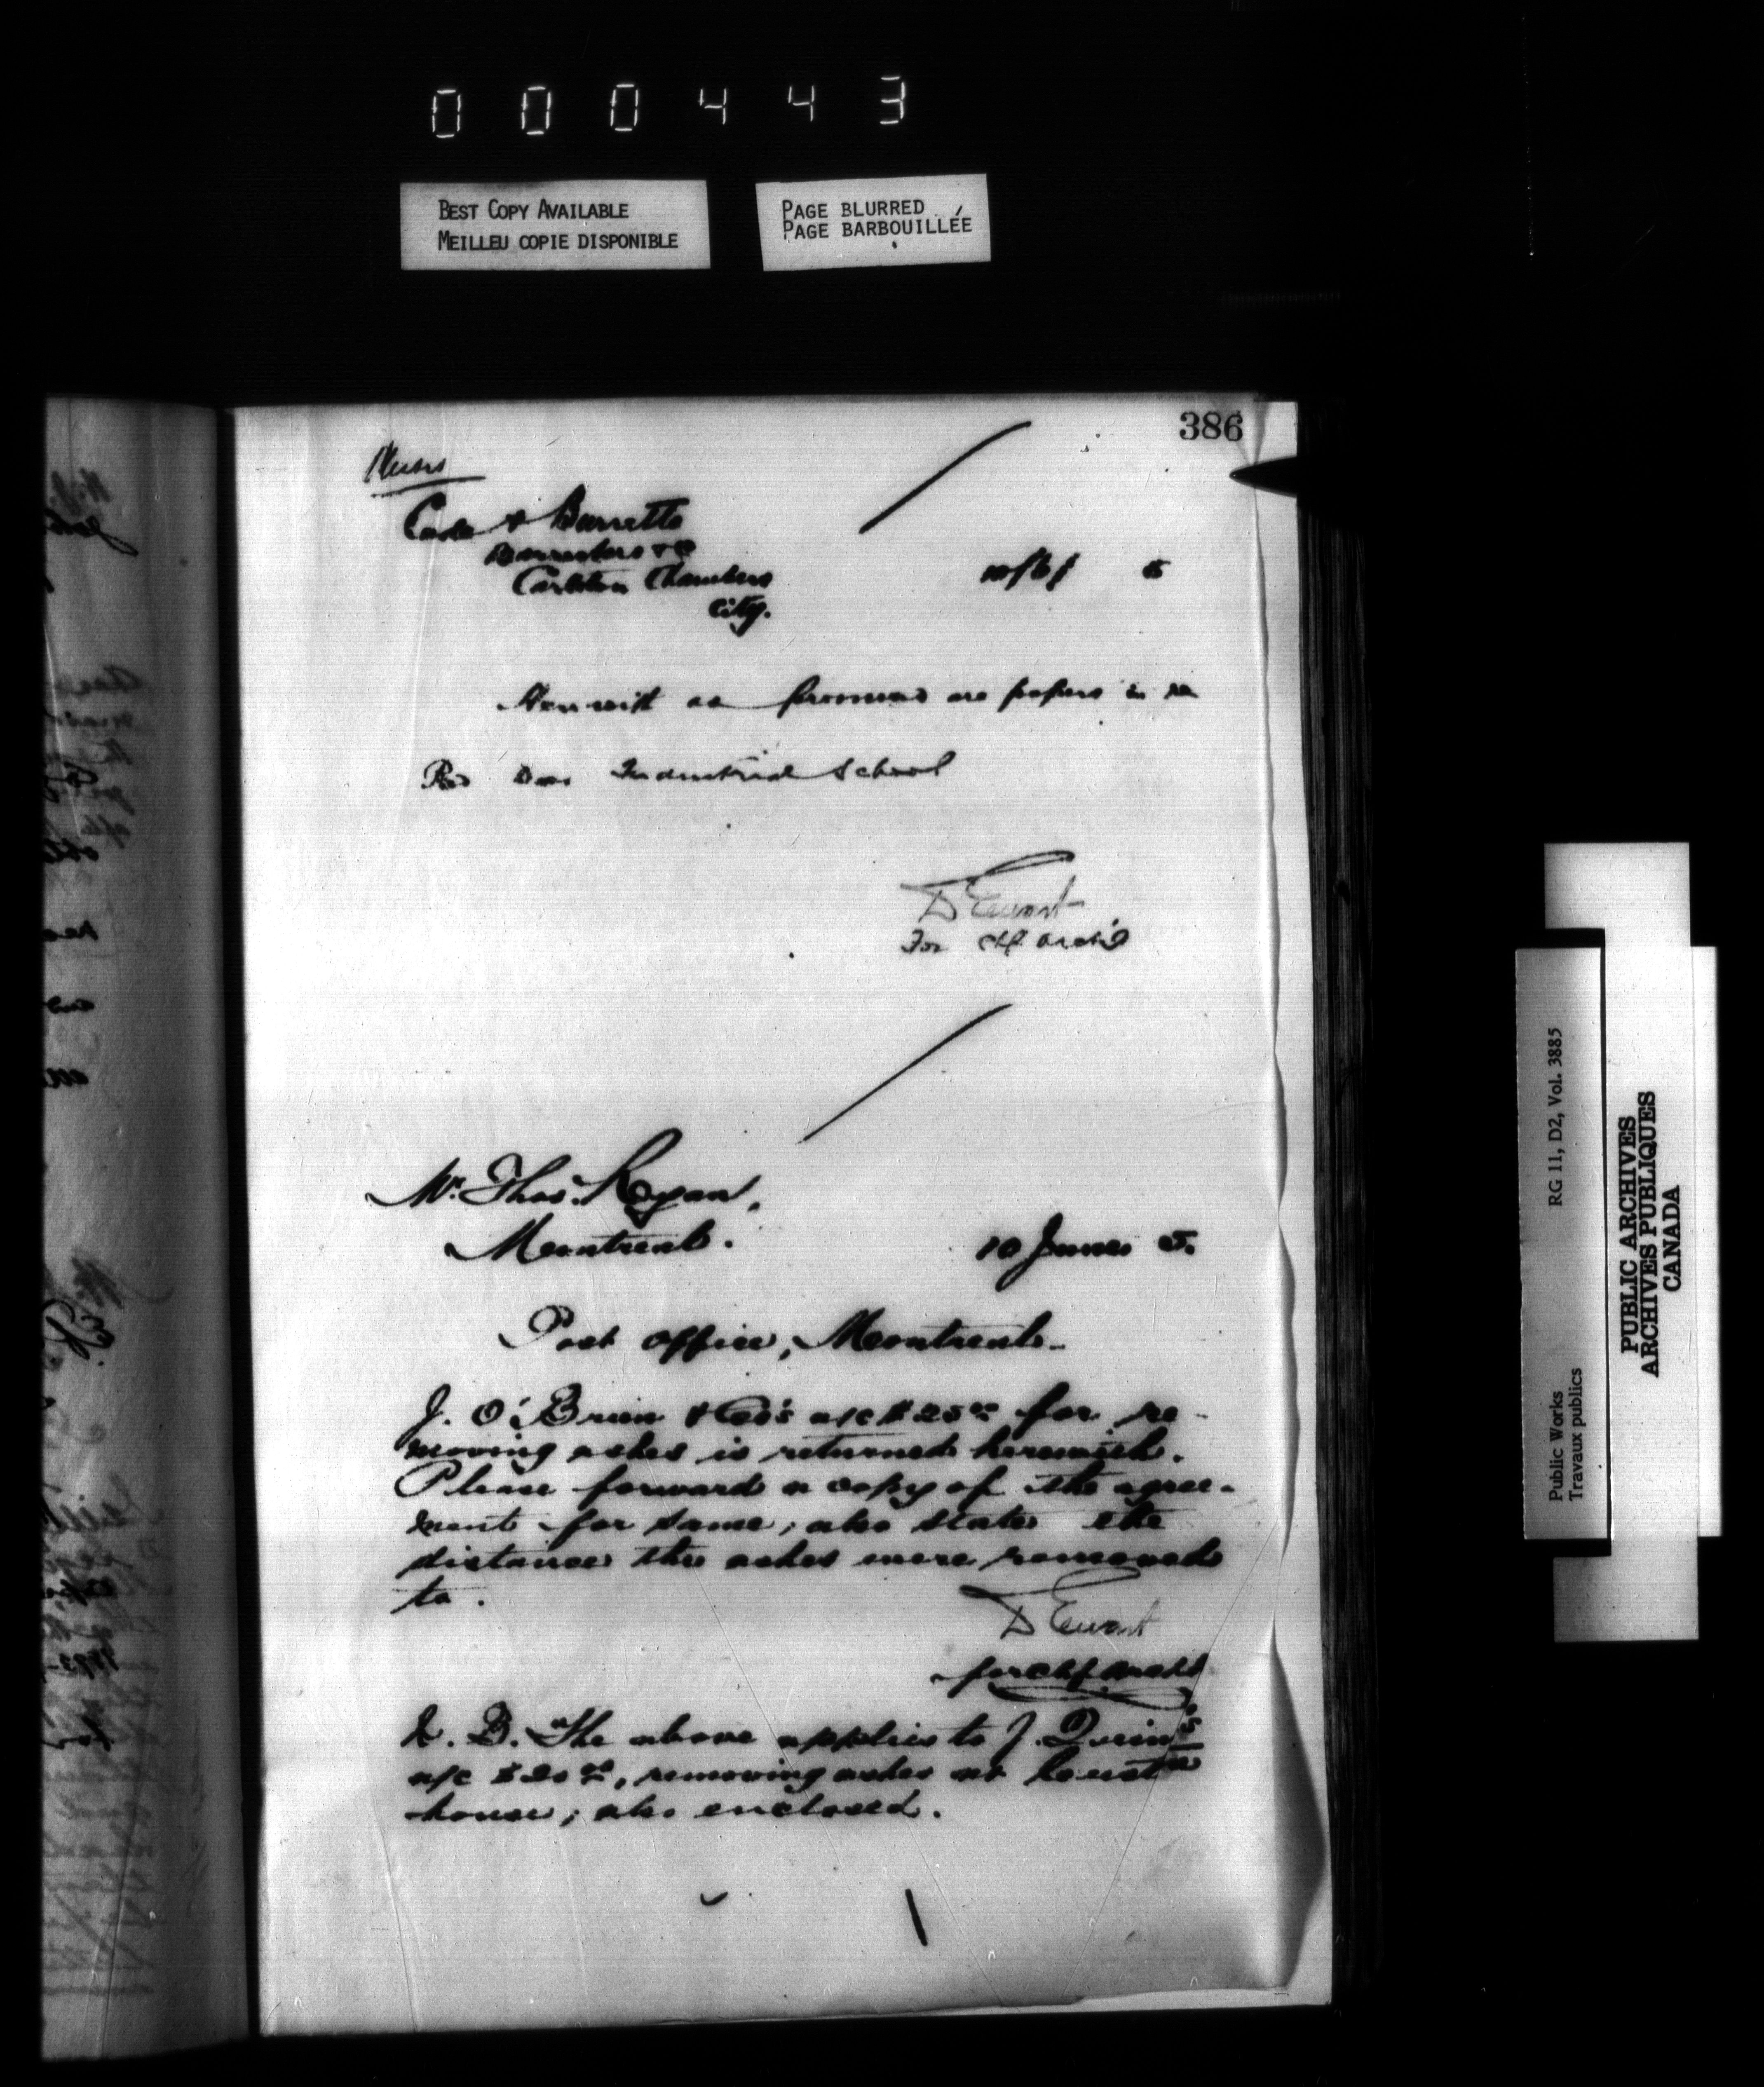 000443
BEST COPY AVAILABLE
MEILLEU COPIE DISPONIBLE
PAGE BLURRED
PAGE BARBOUILLÉE
386
Messrs
Code & Burritt
Barristers &c
Carleton Chambers
City.
10/6/ 5
Herewith as promised are papers in re
Industrial School
D Ewart
For Chf. Arch't
Mr. Thos. Ryan,
Montreal.
10 June 5.
Post Office, Montreal.
J. O'Brien & Co's a/c $25 00 for re-
moving ashes is returned herewith.
Please forward a copy of the agree-
ment for same; also state the
distance the ashes were removed
to.
D Ewart
for Chf. Archt.
N. B. The above applies to J. Quinn's
a/c $20 00, removing ashes at
house; also enclosed.
RG 11, D2, Vol. 3885
Public Works
Travaux publics
PUBLIC ARCHIVES
ARCHIVES PUBLIQUES
CANADA